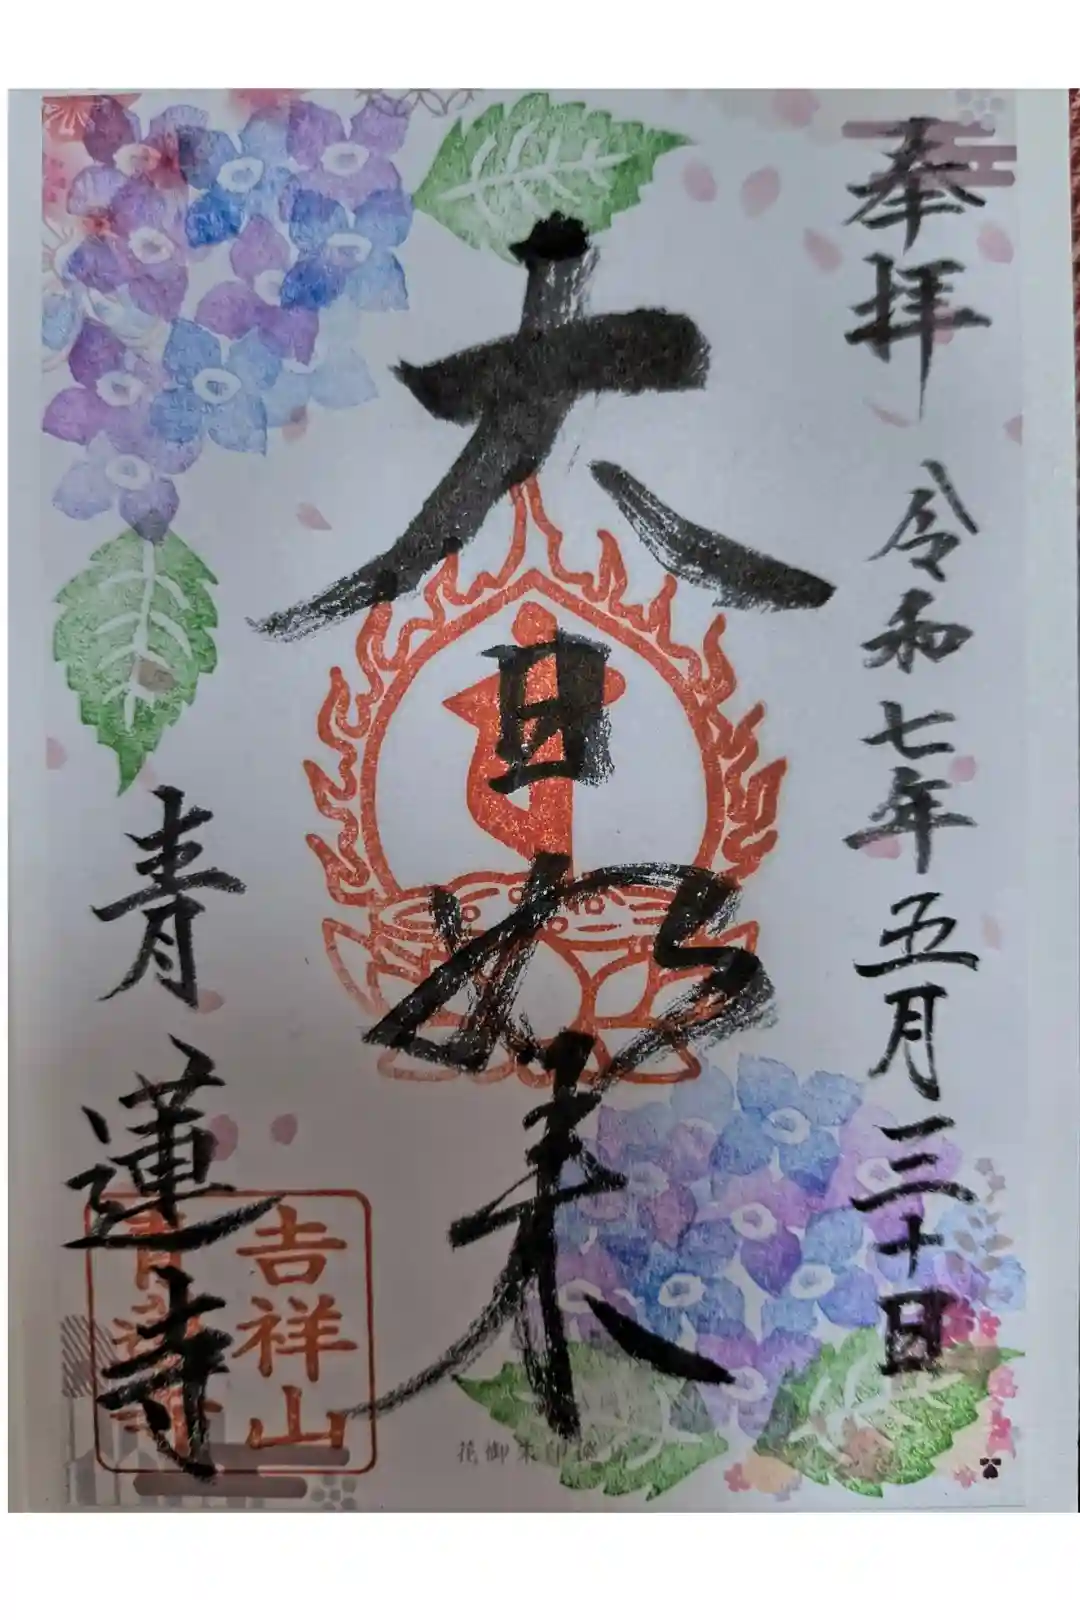 奉拝
令和七年五月三十日
大日如来
青蓮寺
吉祥山
青蓮寺
花御朱印